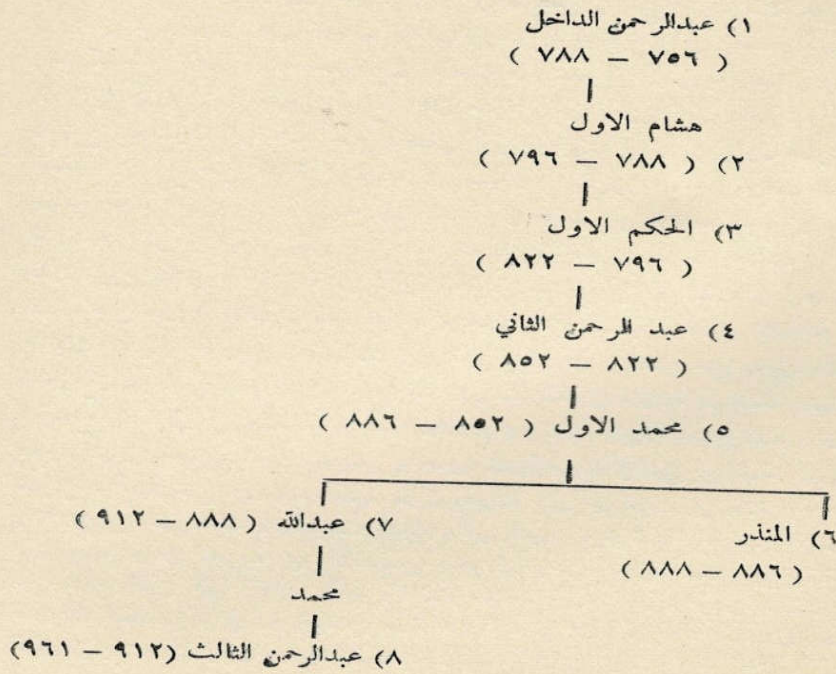 ١) عبدالرحمن الداخل
( ٧٥٦ – ٧٨٨ )
هشام الاول
٢) ( ٧٨٨ – ٧٩٦ )
٣) الحكم الاول
( ٧٩٦ – ٨٢٢ )
٤) عبد الرحمن الثاني
( ٨٢٢ – ٨٥٢ )
٥) محمد الاول ( ٨٥٢ – ٨٨٦ )
٦) المنذر
( ٨٨٦ – ٨٨٨ )
٧) عبدالله ( ٨٨٨ – ٩١٢ )
محمد
٨) عبدالرحمن الثالث (٩١٢ – ٩٦١)